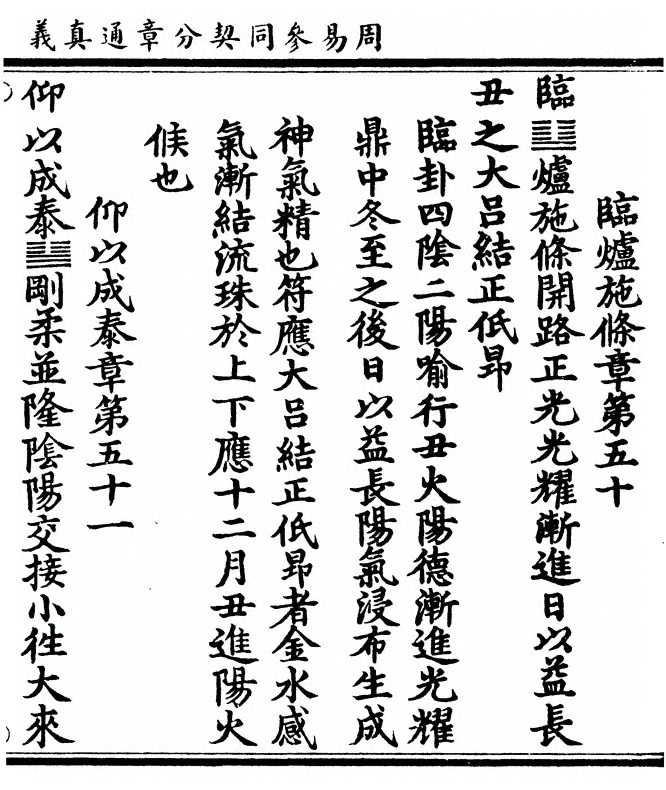 周易參同契分章通真義
臨爐施條章第五十
臨䷒爐施條開路正光光耀漸進日以益長
丑之大呂結正低昂
臨卦四陰二陽喻行丑火陽德漸進光耀
鼎中冬至之後日以益長陽氣浸布生成
神氣精也符應大呂結正低昂者金水感
氣漸結流珠於上下應十二月丑進陽火
候也
仰以成泰章第五十一
仰以成泰䷊剛柔並隆陰陽交接小往大來